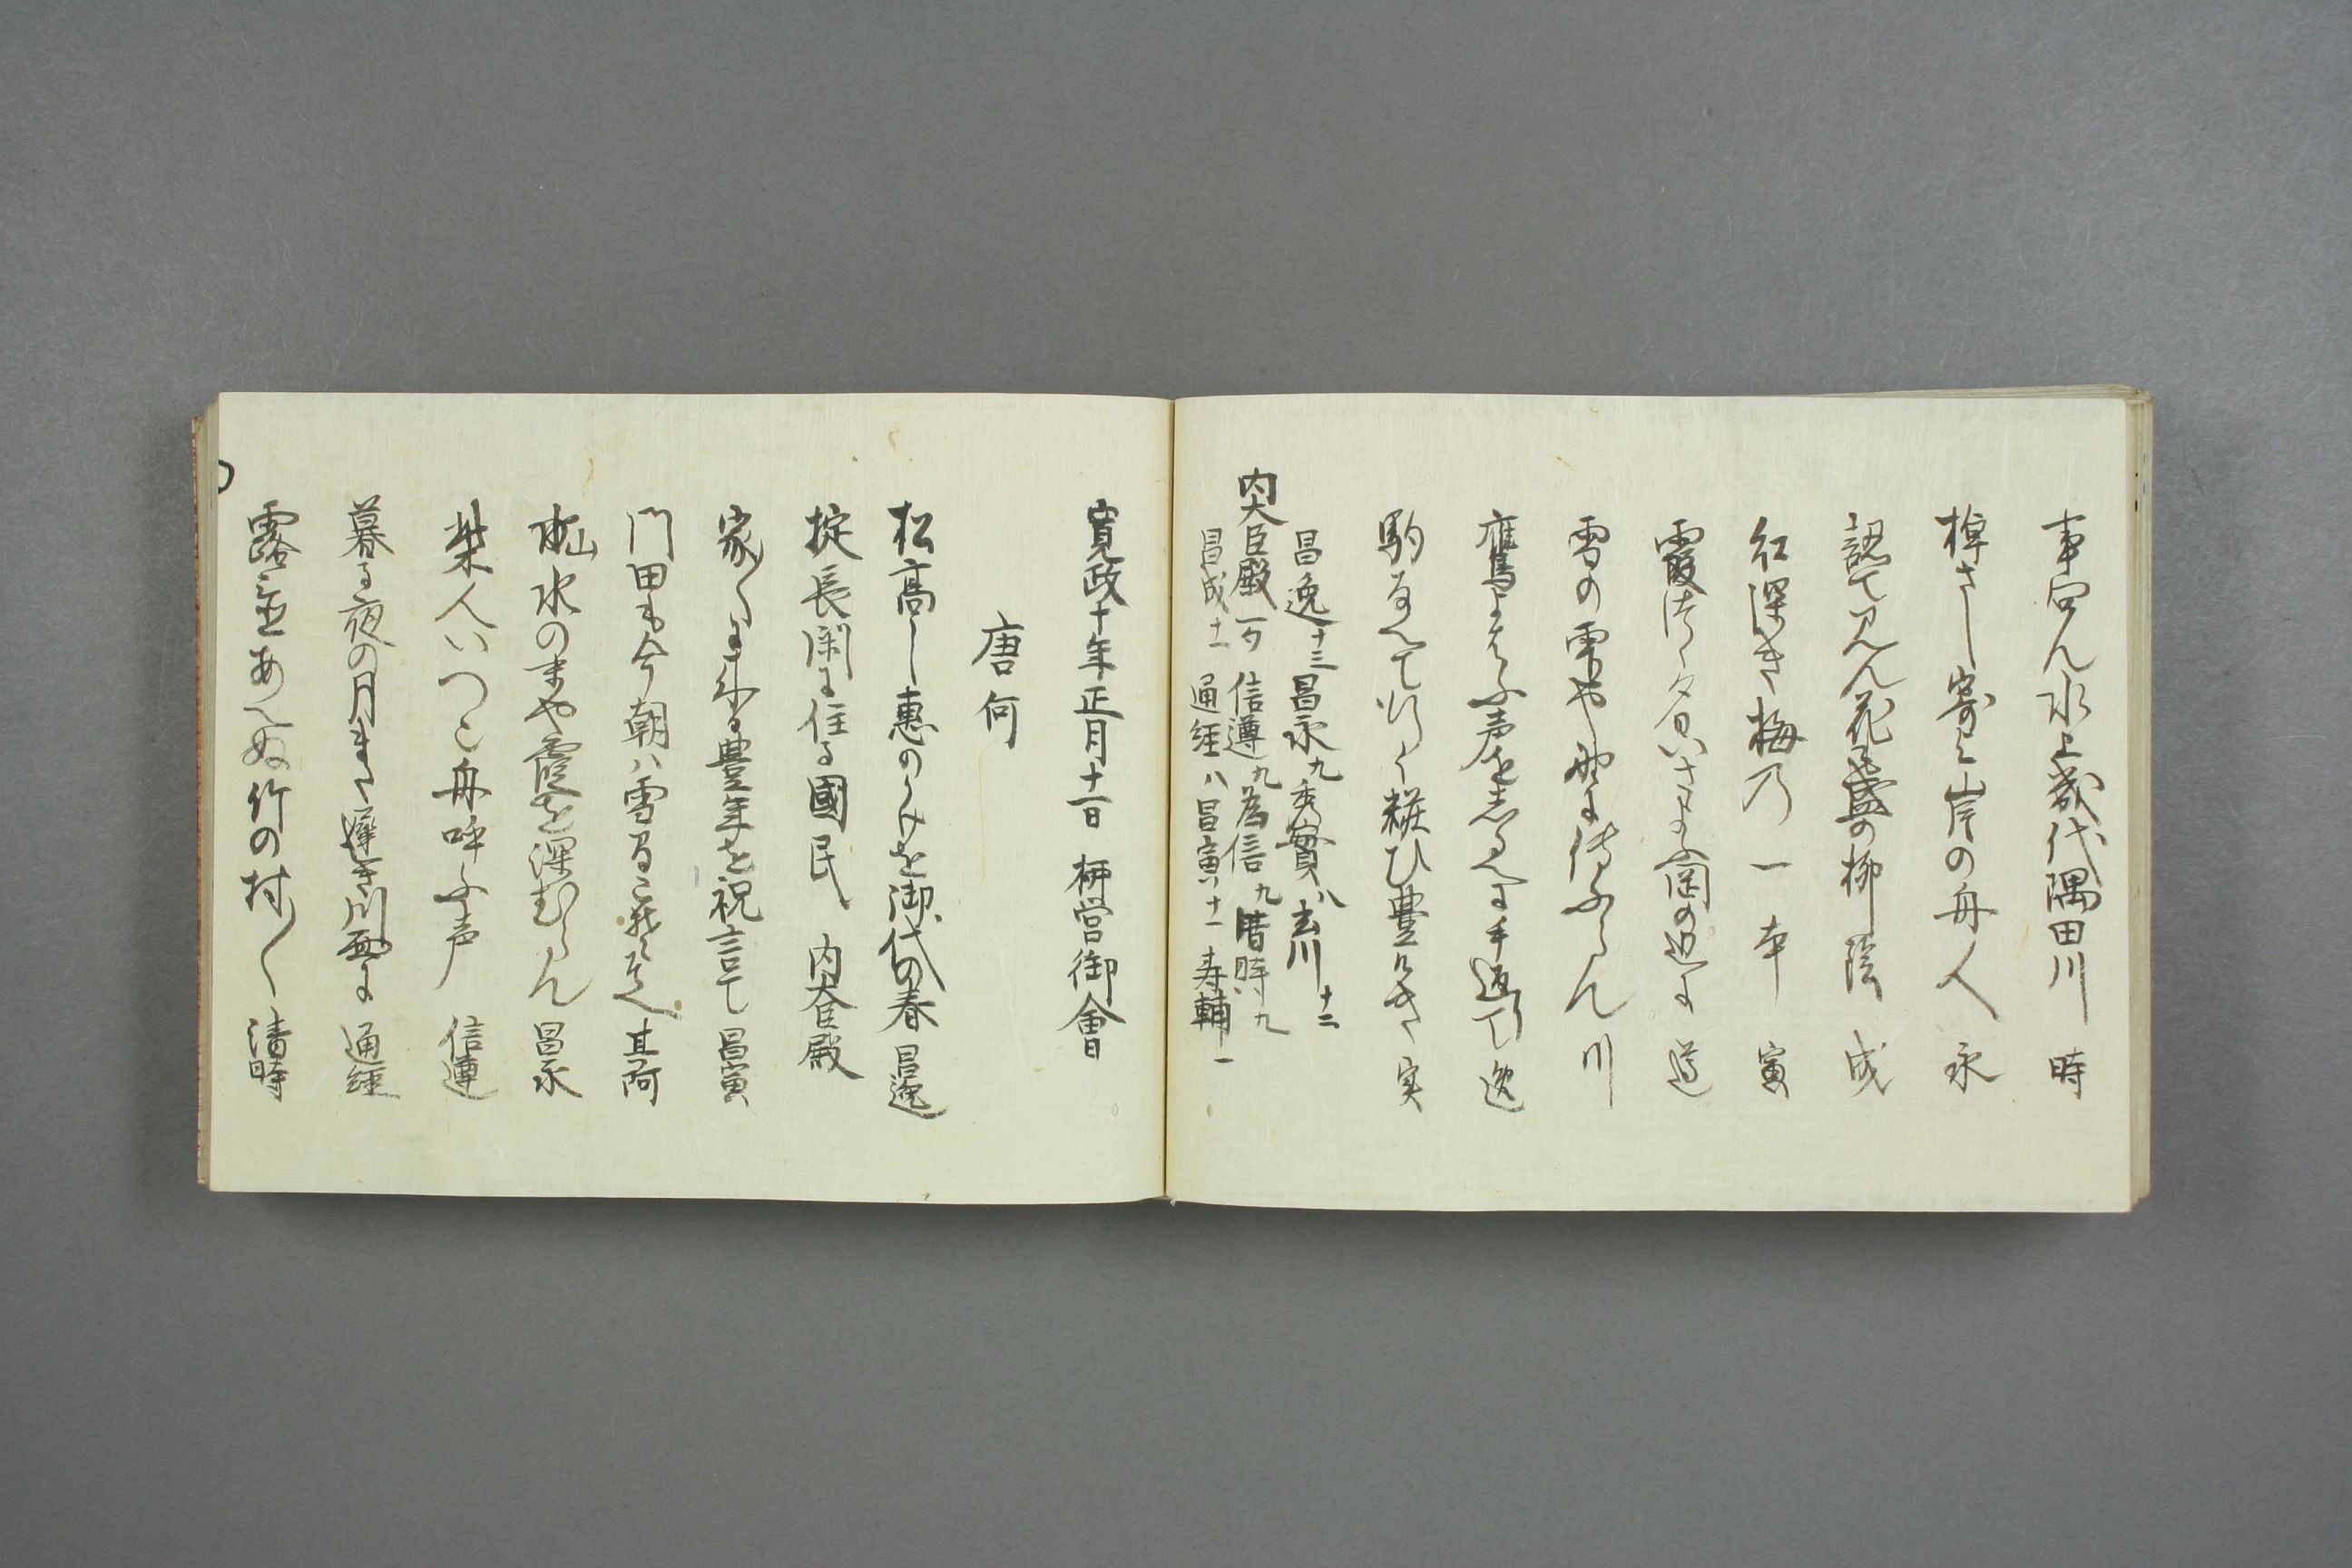 事問ん水上幾代隅田川 時
棹さし寄る岸の舟人 永
認て見ん花も盛の柳陰 成
紅深き梅乃一本 寅
霞往夕日いさよふ岡の辺に 遵
雪の雫や野に伝ふらん 川
鷹よはふ声をしるへに手返りて 逸
駒なへて行く粧ひ豊けき 実
昌逸十三 昌永九 秀實八 玄川十二
内大臣殿一句 信遵九 為信九 暗時九
昌成十一 通経八 昌寅十一 寿輔一
寛政十年正月十一日 柳営御會
唐何
松高し恵のかけを御代の春 昌逸
掟長閑に住る國民 内大臣殿
家〱に来る豊年を祝言て 昌寅
門田も今朝ハ雪なこりそへ 其阿
山水のすや霞を深むらん 昌永
桒人いつこ舟呼ふ声 信遵
暮る夜の月また遅き川面に 通経
露立あへぬ竹の村〱 清時